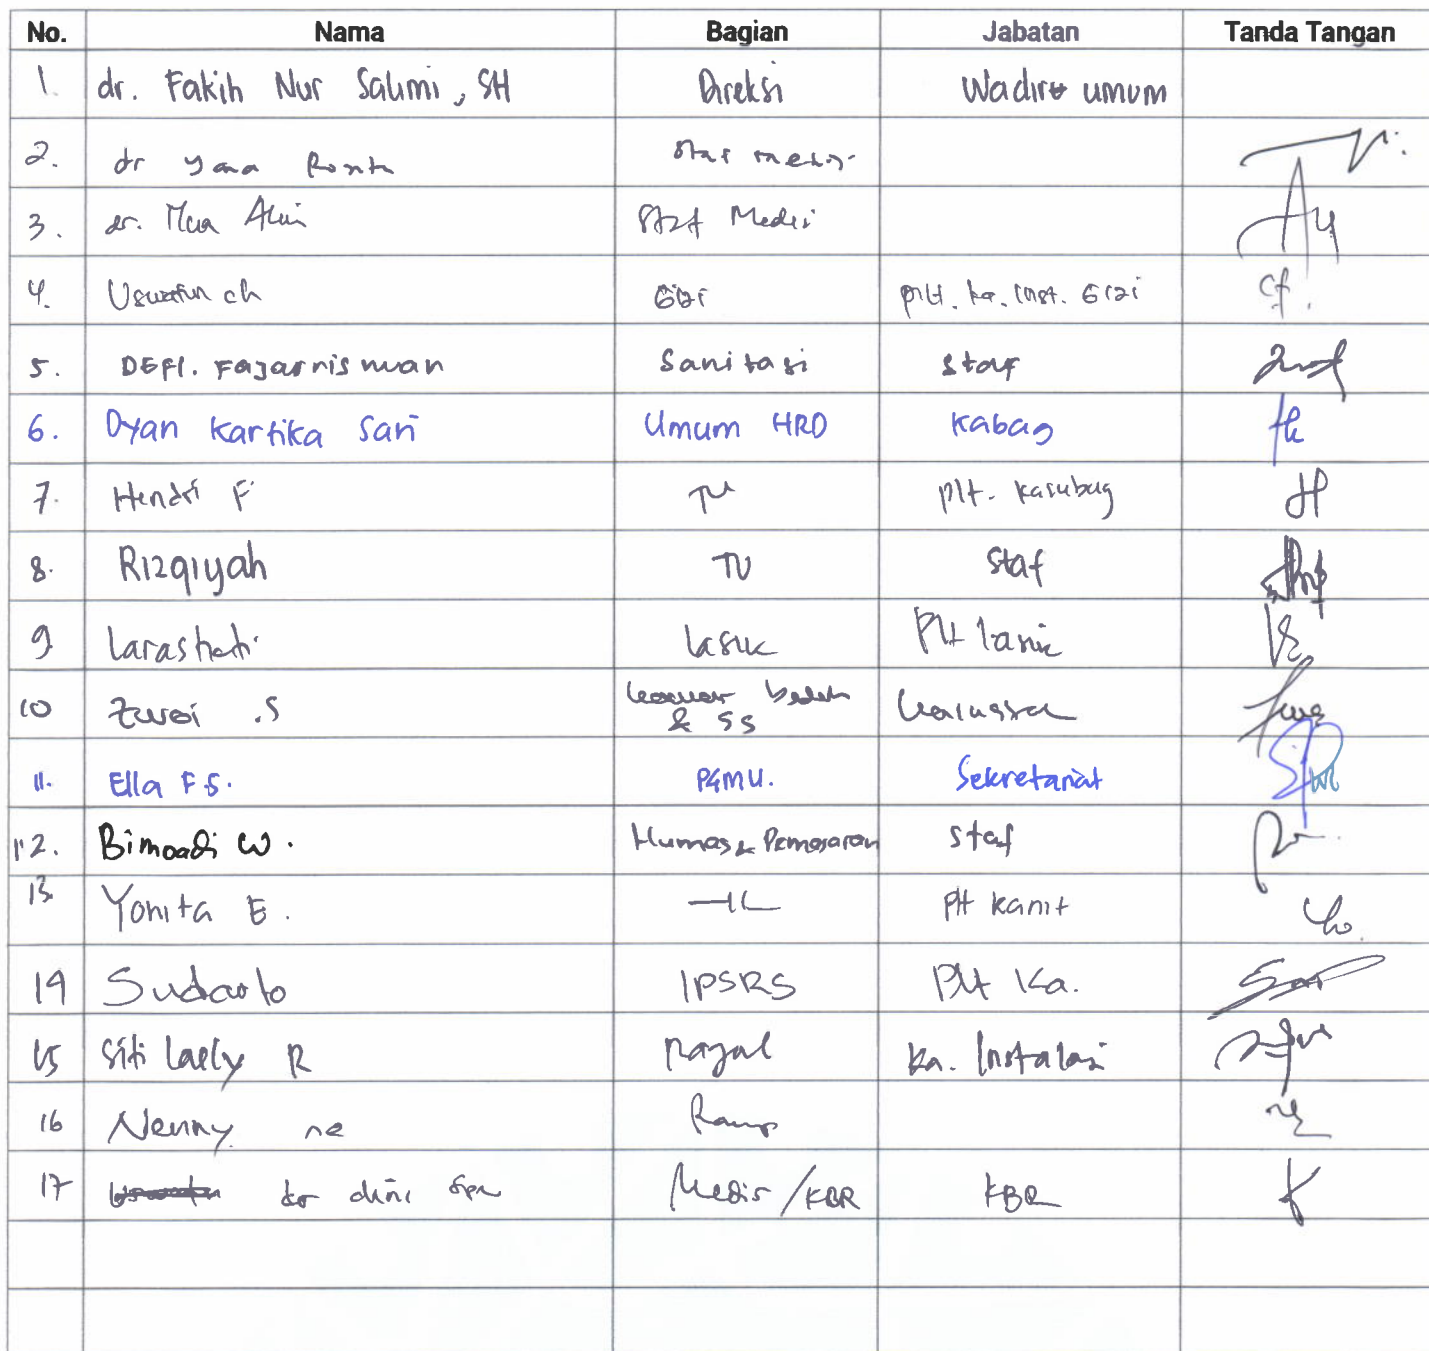 No. Nama Bagian Jabatan Tanda Tangan
1. dr. Fakih Nur Salimi, SH Direksi Wadir umum
2. dr Yana staf medis
3. dr. Staf Medis
4. ch Gizi plt. ka. Inst. Gizi
5. DEFI. Fajarnisman Sanitasi staf
6. Dyan Kartika Sari Umum HRD Kabag
7. Hendri F TU plt. Kasubag
8. Rizqiyah TU Staf
9 Larashati lasik Plt
10 .S & SS
11. Ella F.S. Sekretariat
12. Bimoadi W. Humas & Pemasaran staf
13. Yonita E. Plt kanit
14 Sudarto IPSRS Plt Ka.
15 Siti Laely R Ka. Instalasi
16 Nenny
17 dr dini Medis/KBR KBR